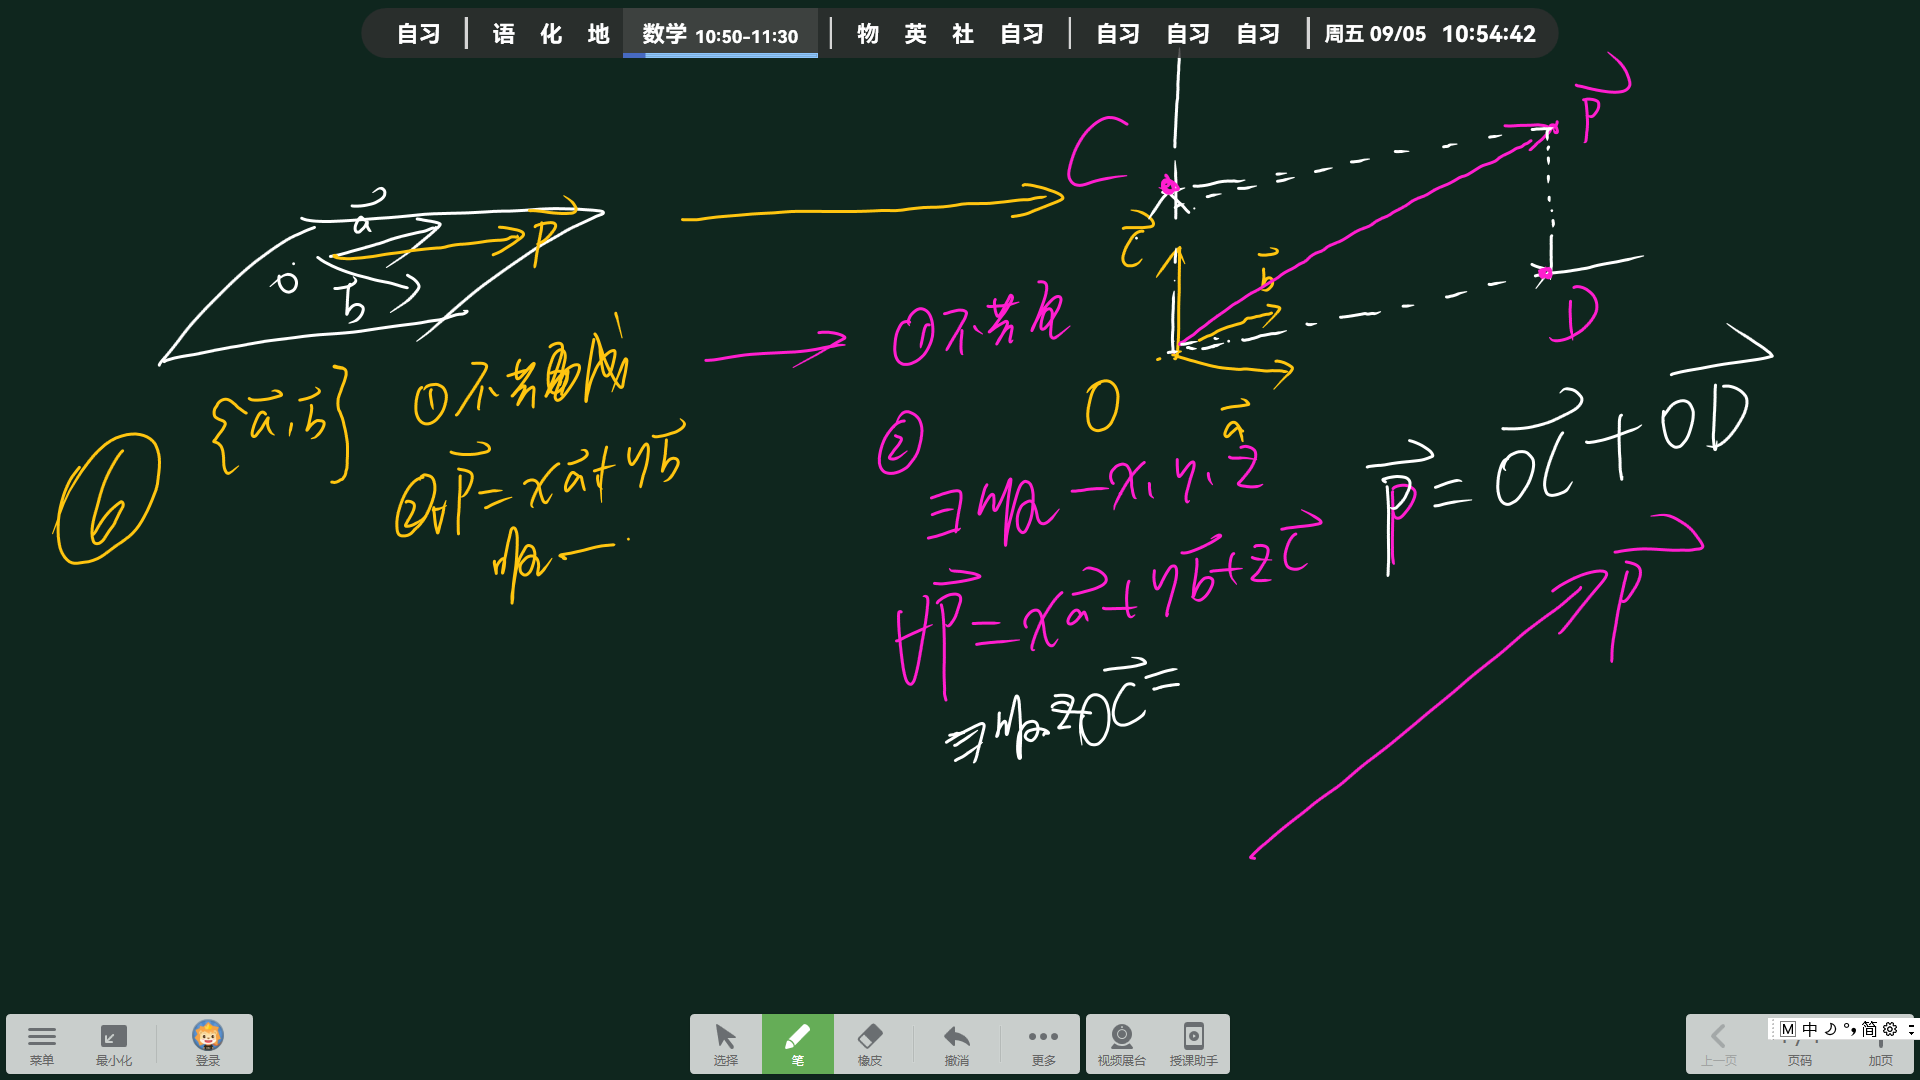 自习 | 语 化 地 数学 10:50-11:30 | 物 英 社 自习 | 自习 自习 自习 | 周五 09/05 10:54:42
C
P
a
P
O
b
C
b
D
O
a
⑥ {a, b}
① 不共
② ∀P = xa + yb
唯一
① 不共面
②
∃ 唯一 x, y, z
∀P = xa + yb + zc
∃ 唯 z OC =
P = OC + OD
P
菜单 最小化 登录
选择 笔 橡皮 撤消 更多
视频展台 授课助手
上一页 页码 加页
M 中 简